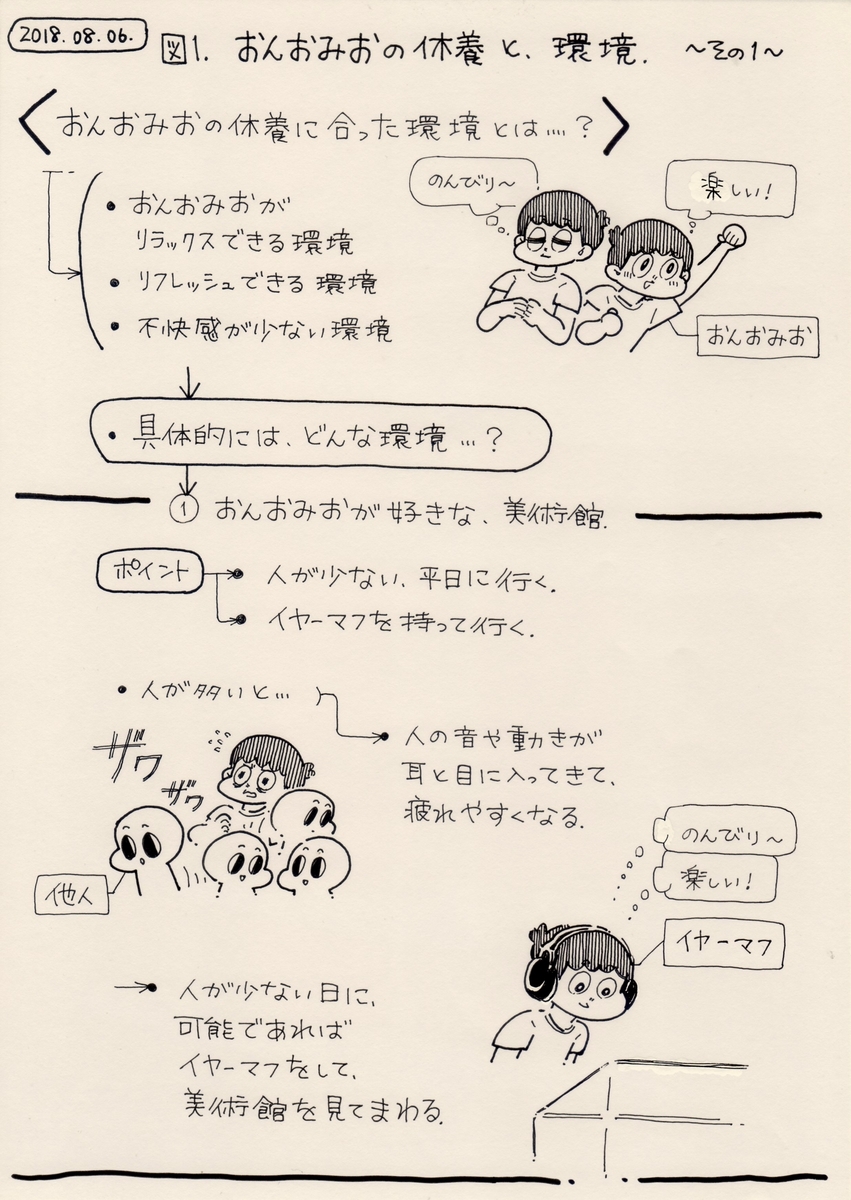 2018.08.06.
図1. おんおみおの休養と、環境. ～その1～
〈おんおみおの休養に合った環境とは….?〉
のんびり～
楽しい!
• おんおみおが
リラックスできる環境
• リフレッシュできる環境
• 不快感が少ない環境
おんおみお
• 具体的には、どんな環境…?
① おんおみおが好きな、美術館.
ポイント
• 人が少ない、平日に行く.
• イヤーマフを持って行く.
• 人が多いと…
• 人の音や動きが
耳と目に入ってきて、
疲れやすくなる.
ザワ
ザワ
他人
のんびり～
楽しい!
イヤーマフ
→• 人が少ない日に、
可能であれば
イヤーマフをして、
美術館を見てまわる.